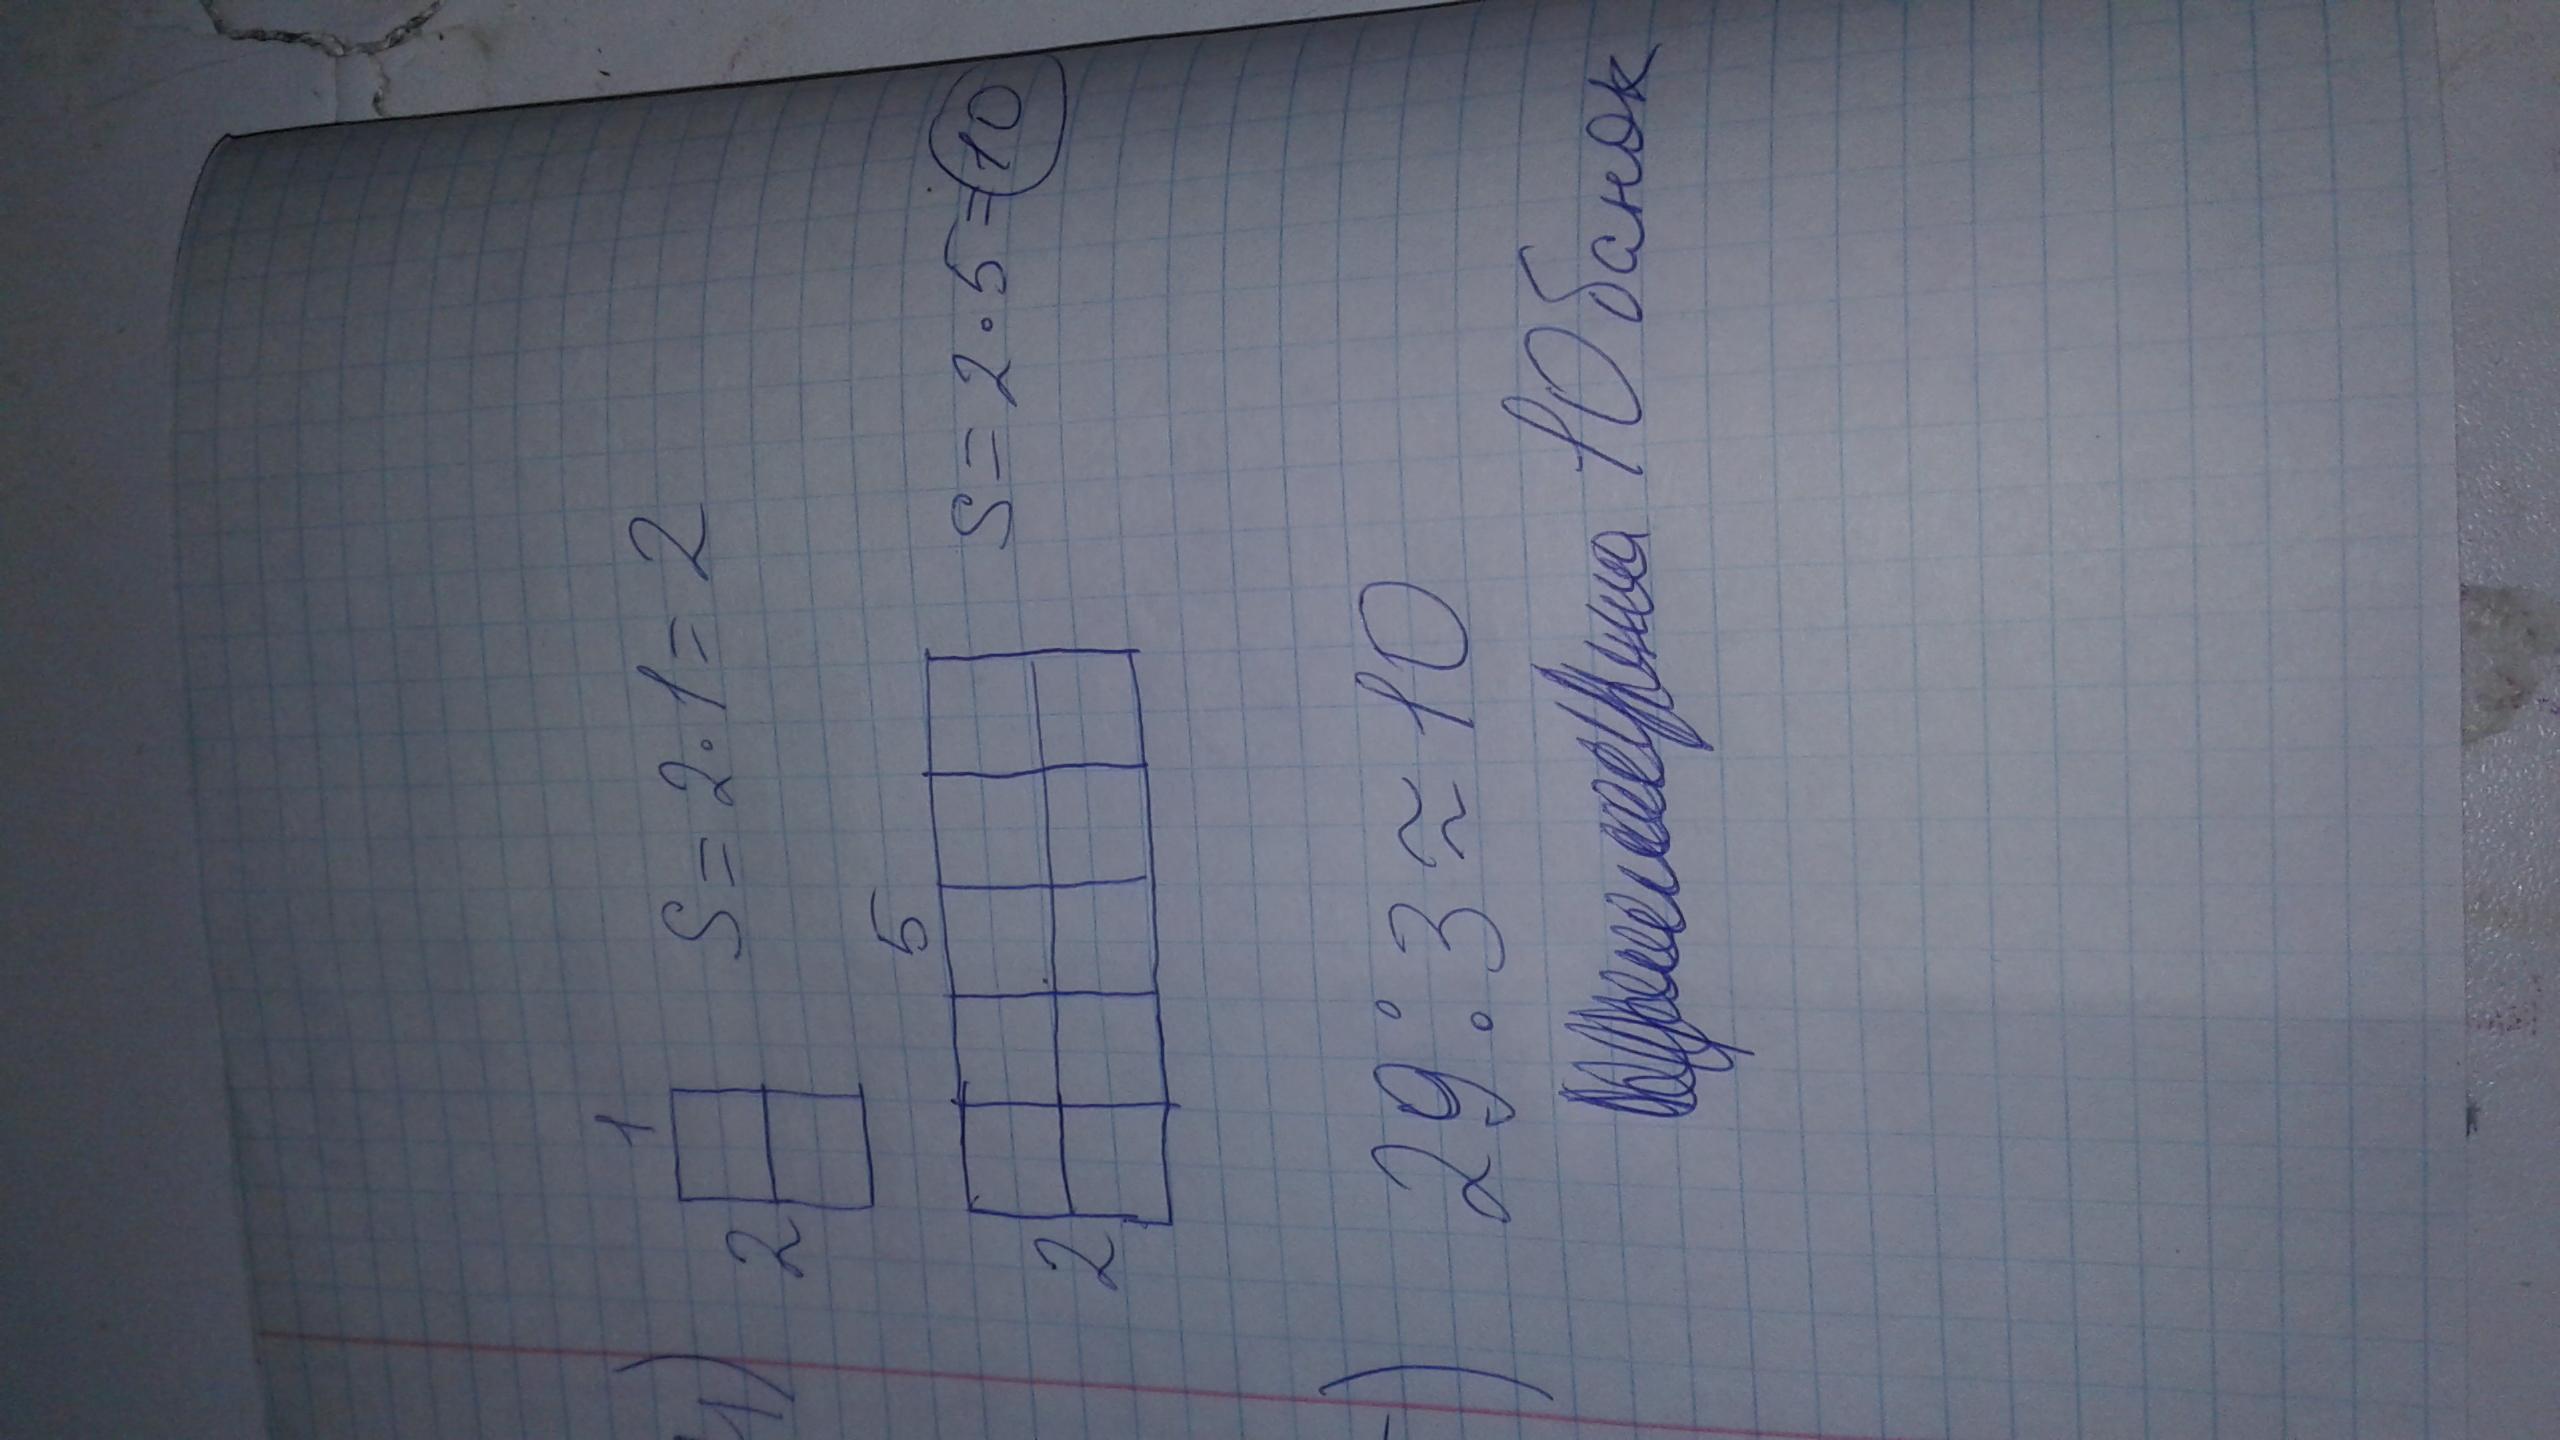 1
2 S = 2 · 1 = 2
5
2 S = 2 · 5 = 10
29 : 3 ≈ 10
10 банок